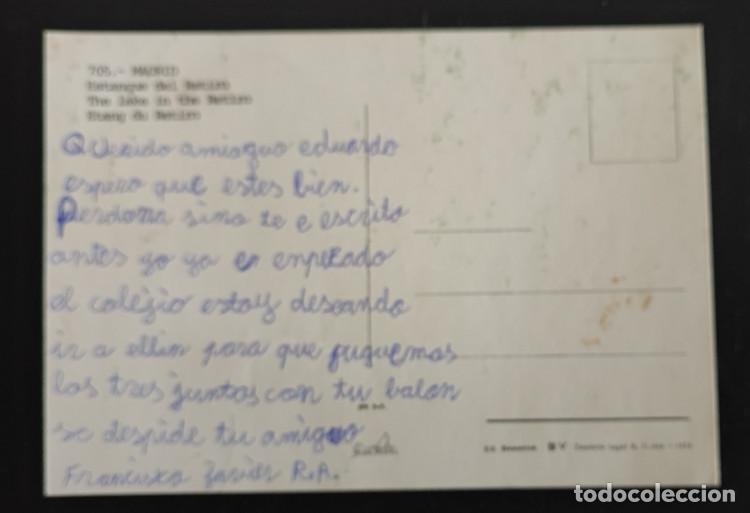 705.- MADRID
Estanque del Retiro
The lake in the Retiro
Etang du Retiro
Querido amiaguo eduardo
espero que estes bien.
Perdona sino te e escrito
antes yo ya e enpezado
el colegio estoy deseando
ir a ellin para que juguemos
los tres juntos con tu balon
se despide tu amiguo
Francisco Javier R.A.
todocoleccion
todocoleccion.net